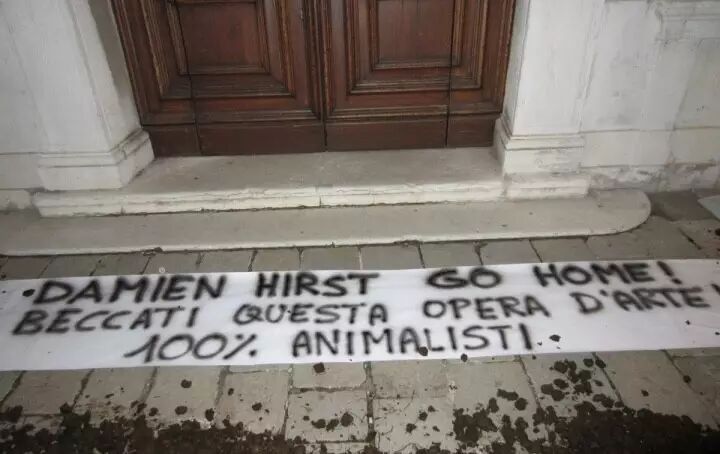 DAMIEN HIRST GO HOME!
BECCATI QUESTA OPERA D'ARTE!
100% ANIMALISTI